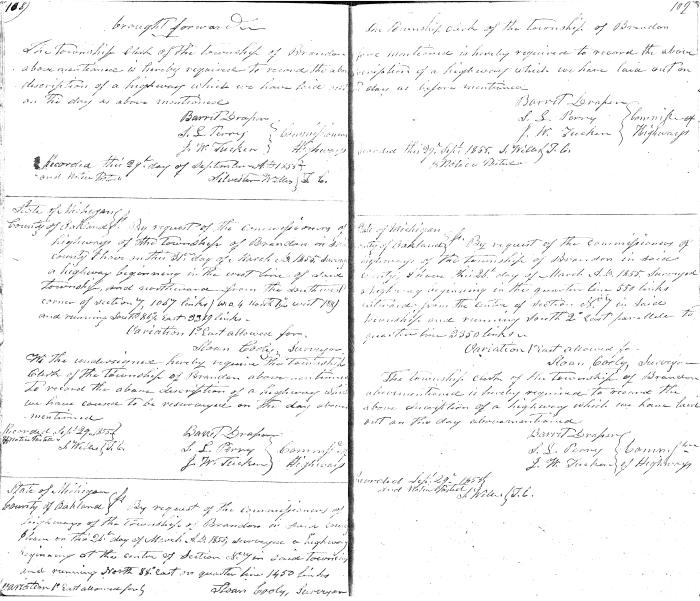 108
brought forward
The township Clerk of the township of Brandon
above mentioned is hereby required to record the above
description of a highway which we have laid out
on the day as above mentioned
Barrit Draper
S. L. Perry
J. W. Tucker
Commissioners
Highways
Recorded this 29th day of September A.D. 1855
and Silvester Wilks T. C.
State of Michigan
County of Oakland ss By request of the commissioners of
highways of the township of Brandon in said
county I have on this day of March A.D. 1855 Surveyed
a highway beginning in the west line of said
township and northward from the southwest
corner of section 7, 1067 links
and running South 86½ East 3319 links
Variation 1° East allowed for
Sloan Cooly, Surveyor
We the undersigned hereby require the township
Clerk of the township of Brandon above mentioned
to record the above description of a highway which
we have caused to be resurveyed on the day above
mentioned
Recorded Sept 29 1855
S. Wilks T. C.
Barrit Draper
S. L. Perry
J. W. Tucker
Commis of
Highways
State of Michigan
County of Oakland ss By request of the commissioners of
highways of the Township of Brandon in said county
I have on this day of March A.D. 1855 surveyed a highway
beginning at the centre of Section in said township
and running North 88° East on quarter line 1450 links
Variation 1° East allowed for
Sloan Cooly, Surveyor
109
The Township clerk of the township of Brandon
above mentioned is hereby required to record the above
description of a highway which we have laid out on
day as before mentioned
Barrit Draper
S. L. Perry
J. W. Tucker
Commis of
Highways
Recorded this 29 Sept. 1855. S. Wilks T. C.
State of Michigan
County of Oakland ss By request of the commissioners of
highways of the township of Brandon in said
county, I have this day of March A.D. 1855 Surveyed
a highway beginning in the quarter line 550 links
from the centre of section in said
township and running South 2° East parallel to
quarter line 3350 links
Variation 1° East allowed for
Sloan Cooly Surveyor
The township clerk of the township of Brandon
abovementioned is hereby required to record the
above description of a highway which we have laid
out on the day abovementioned
Barrit Draper
S. L. Perry
J. W. Tucker
Commis
of Highways
Recorded Sept. 29 1855
S. Wilks T. C.